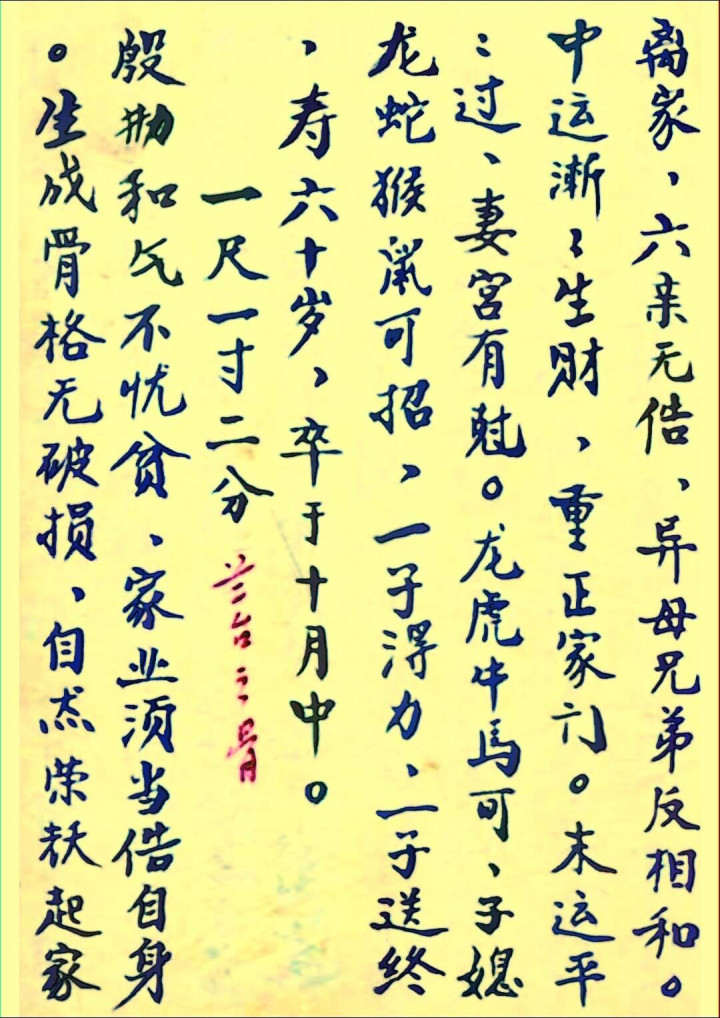 离家、六亲无俈、异母兄弟反相和。
中运渐〻生财、重正家门。末运平
〻过、妻宫有尅。龙虎牛馬可、子媳
龙蛇猴鼠可招、一子得力、二子送终
、寿六十岁、卒于十月中。
一尺一寸二分 兰台之骨
殷勤和气不忧贫、家业须当俈自身
。生成骨格无破损、自然荣耀起家